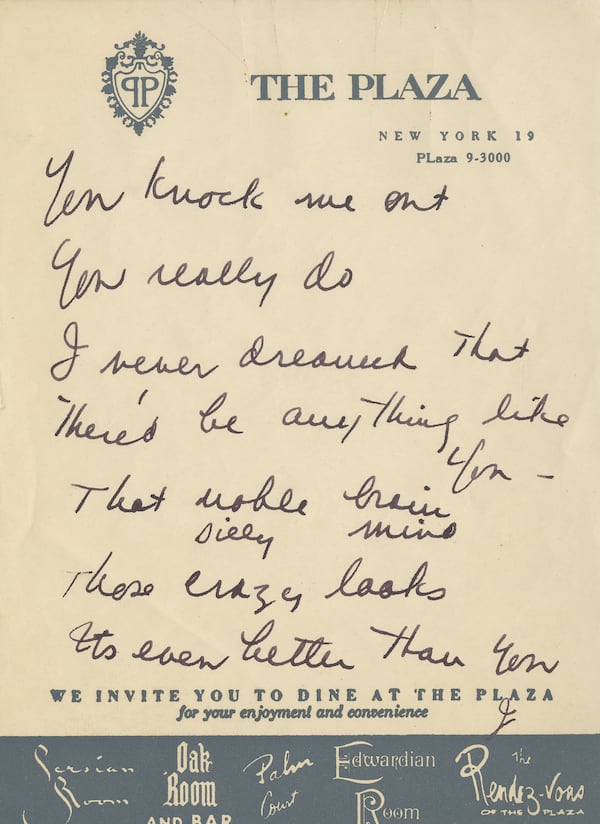 PP
THE PLAZA
NEW YORK 19
PLaza 9-3000
You knock me out
You really do
I never dreamed that
There'd be anything like
You -
That noble brain
silly mind
Those crazy looks
Its even better Than You
WE INVITE YOU TO DINE AT THE PLAZA
for your enjoyment and convenience
Persian Room
Oak Room AND BAR
Palm Court
Edwardian Room
The Rendez-Vous OF THE PLAZA